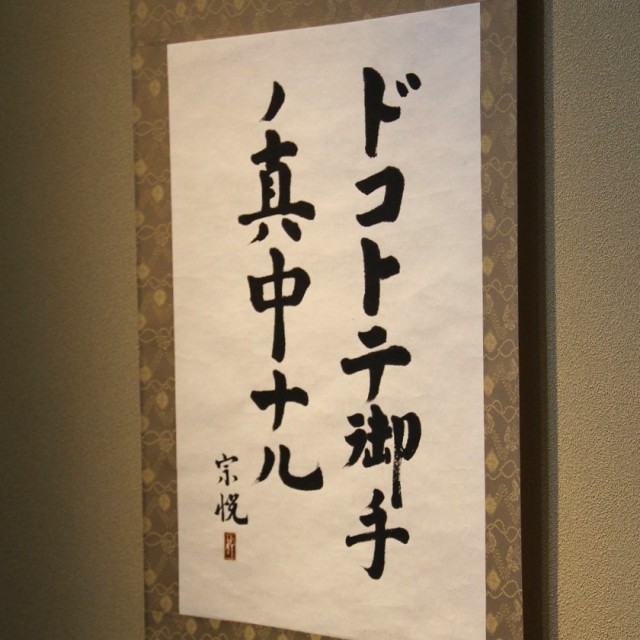 ドコトテ御手
ノ真中ナル
宗悦